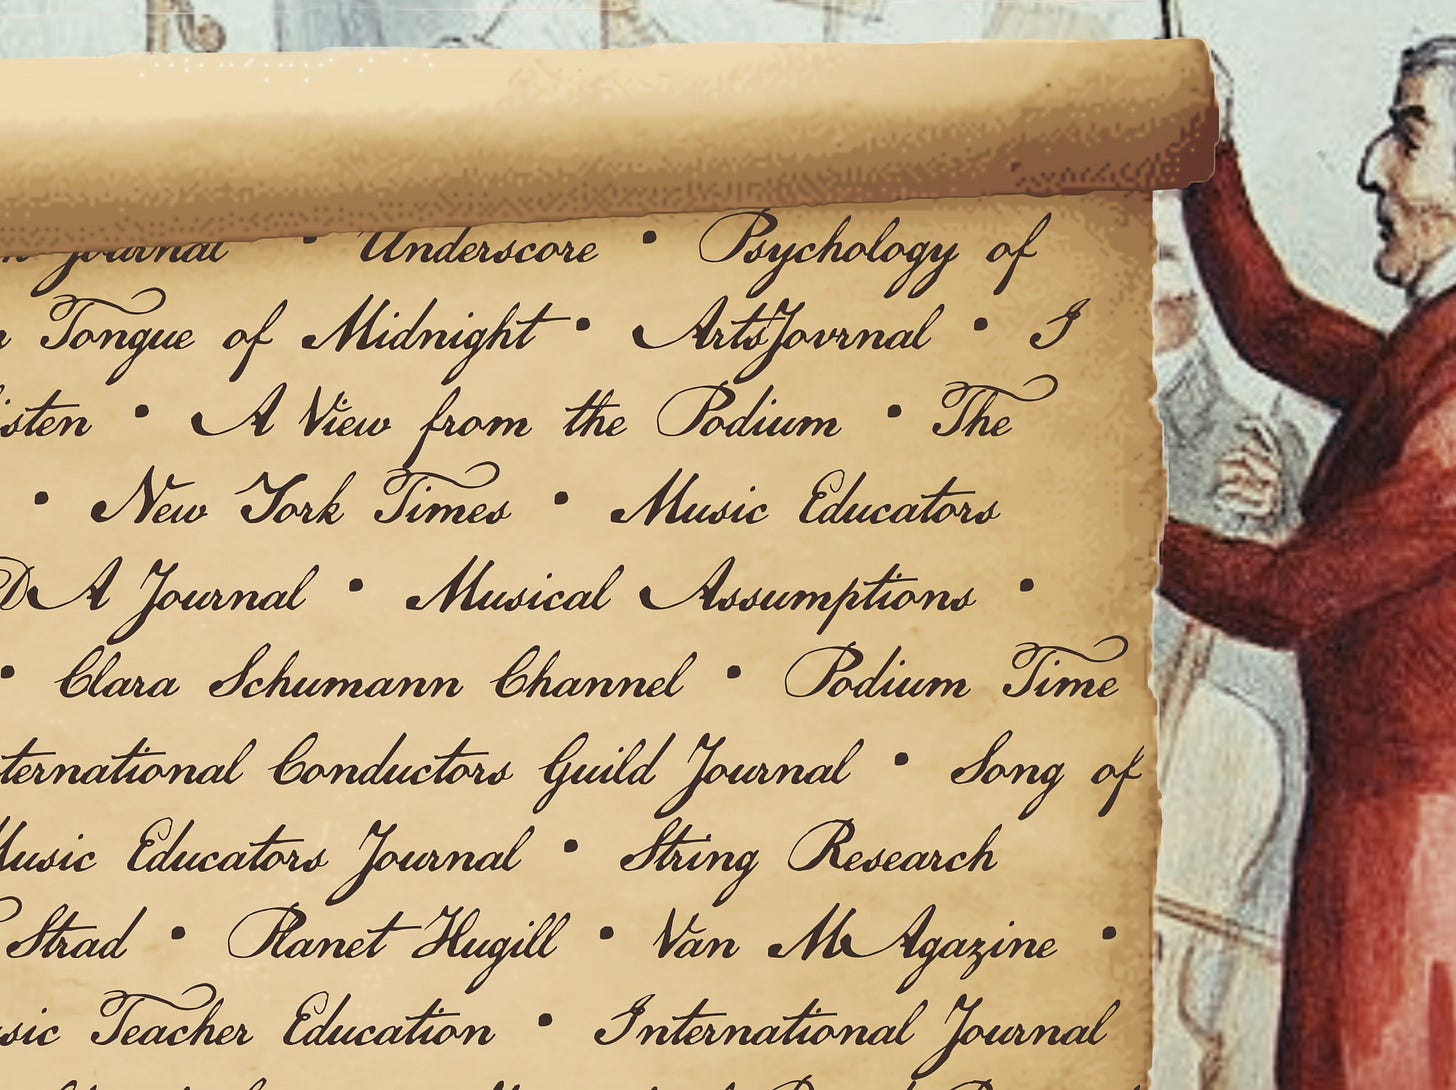 Journal • Underscore • Psychology of
Tongue of Midnight • ArtsJovrnal • I
A View from the Podium • The
• New York Times • Music Educators
DA Journal • Musical Assumptions •
• Clara Schumann Channel • Podium Time
ternational Conductors Guild Journal • Song of
Music Educators Journal • String Research
Strad • Planet Hugill • Van MAgazine •
sic Teacher Education • International Journal